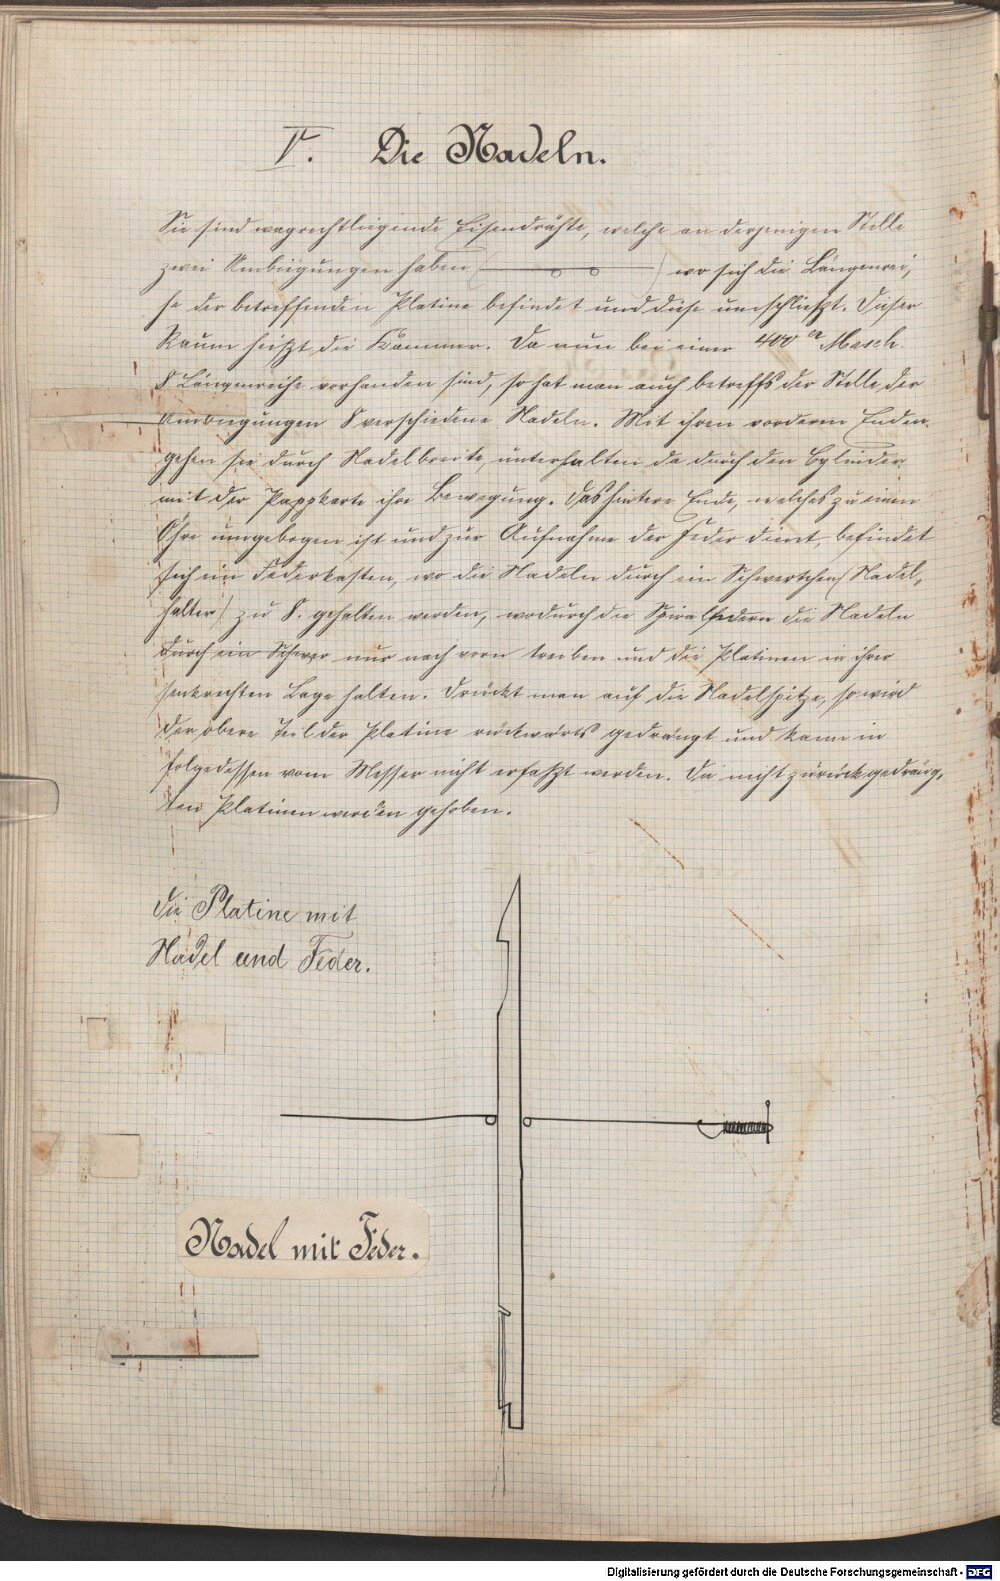 V. Die Nadeln.
Sie sind wagrechtliegende Eisendrähte, welche an derjenigen Stelle
zwei Umbiegungen haben ( ) wo sich die Längenrei,
he der betreffenden Platine befindet und diese umschließt. Dieser
Raum heißt die Kammer. Da nun bei einer 400er Masch.
8 Längenreihe vorhanden sind, so hat man auch betreffs der Stelle der
Umbiegungen 8 verschiedene Nadeln. Mit ihren vorderen Enden
gehen sie durch Nadelbreite, unterhalten da durch den Cylinder
mit der Pappkarte ihre Bewegung. Das hintere Ende, welches zu einem
Öhre umgebogen ist und zur Aufnahme der Feder dient, befindet
sich im Federkasten, wo die Nadeln durch ein Schwertchen (Nadel-
halter) zu 8. gehalten werden, wodurch die Spiralfedern die Nadeln
durch ein Schwer nur nach vorn treiben und die Platinen in ihrer
senkrechten Lage halten. Drückt man auf die Nadelspitze, so wird
der obere Teil der Platine rückwärts gedrängt und kann in
folgedessen vom Messer nicht erfaßt werden. Die nicht zurückgedräng,
ten Platinen werden gehoben.
die Platine mit
Nadel und Feder.
Nadel mit Feder.
Digitalisierung gefördert durch die Deutsche Forschungsgemeinschaft - DFG